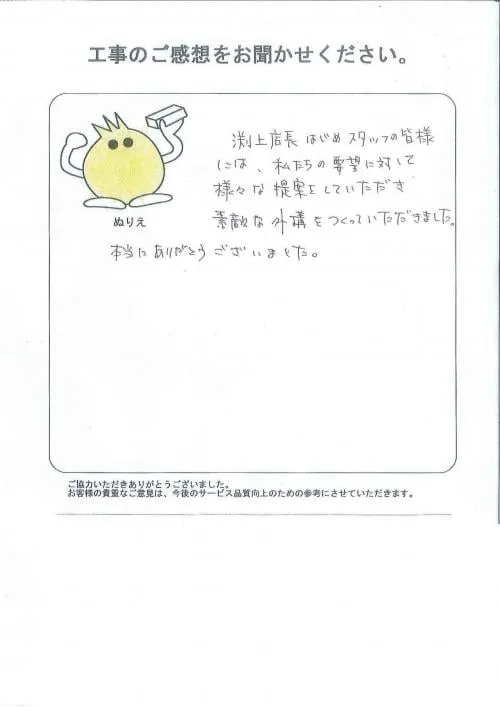 工事のご感想をお聞かせください。
渕上店長はじめスタッフの皆様
には、私たちの要望に対して
様々な提案をしていただき
素敵な外構をつくっていただきました。
本当にありがとうございました。
ぬりえ
ご協力いただきありがとうございました。
お客様の貴重なご意見は、今後のサービス品質向上のための参考にさせていただきます。